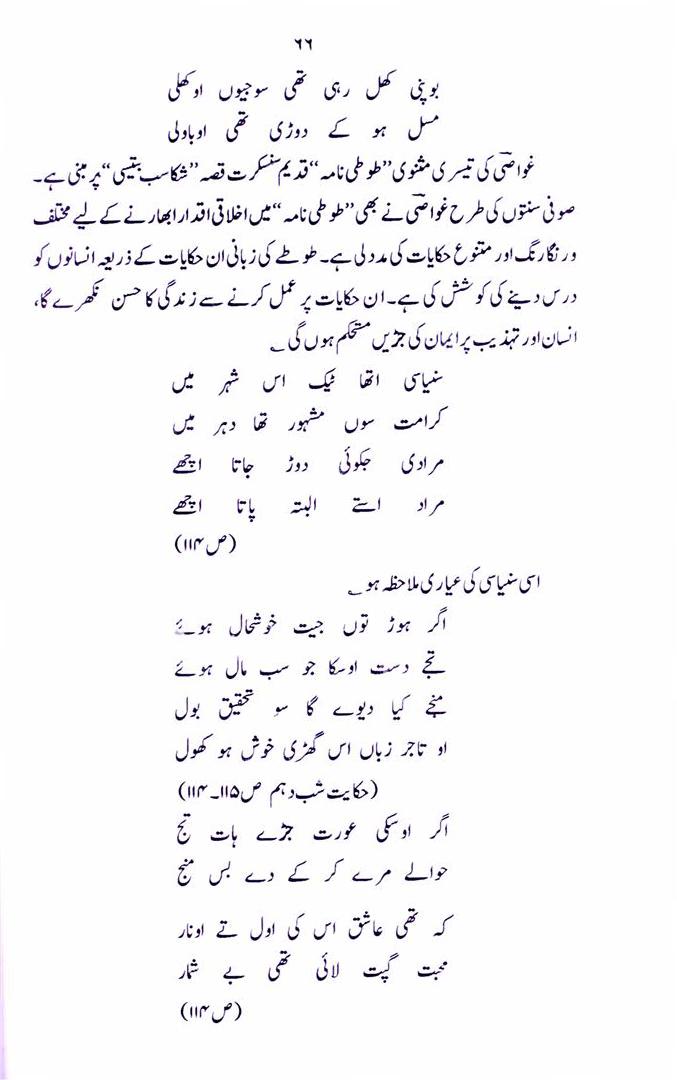 ۶۶
بوپنی کھل رہی تھی سوجیوں اوکھلی
مسل ہو کے دوڑی تھی اوباولی
غواصی کی تیسری مثنوی ’’طوطی نامہ‘‘ قدیم سنسکرت قصہ ’’شکاسب بتیسی‘‘ پر مبنی ہے۔
صوفی سنتوں کی طرح غواصی نے بھی ’’طوطی نامہ‘‘ میں اخلاقی اقدار ابھارنے کے لیے مختلف
ورنگارنگ اور متنوع حکایات کی مدد لی ہے۔ طوطے کی زبانی ان حکایات کے ذریعہ انسانوں کو
درس دینے کی کوشش کی ہے۔ ان حکایات پر عمل کرنے سے زندگی کا حسن نکھرے گا،
انسان اور تہذیب پر ایمان کی جڑیں مستحکم ہوں گی ؎
سنیاسی اتھا ٹیک اس شہر میں
کرامت سوں مشہور تھا دہر میں
مرادی جکوئی دوڑ جاتا اچھے
مراد استے البتہ پاتا اچھے
(ص ۱۱۴)
اسی سنیاسی کی عیاری ملاحظہ ہو ؎
اگر ہوڑ توں جیت خوشحال ہوئے
تجے دست اوسکا جو سب مال ہوئے
منجے کیا دیوے گا سو تحقیق بول
او تاجر زباں اس گھڑی خوش ہو کھول
(حکایت شب دہم ص ۱۱۵۔۱۱۴)
اگر اوسکی عورت جڑے ہات تج
حوالے مرے کر کے دے بس منج
کہ تھی عاشق اس کی اول تے اونار
محبت گپت لائی تھی بے شمار
(ص ۱۱۴)